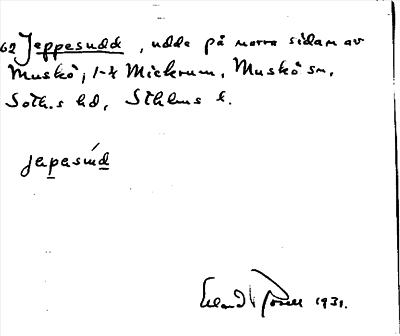 62 Jeppesudd, udde på norra sidan av
Muskö, 1-4 Mickrum, Muskö sn,
Soth.s hd, Sthlms l.
jepasúd
1931.